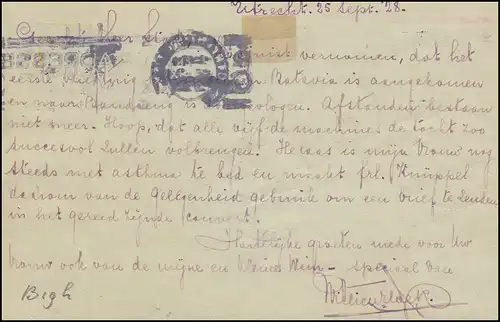 Utrecht. 25 Sept. '28.
Geachte Heer
juist vernomen, dat het
eerste vliegtuig Batavia is aangekomen
en naar Bandoeng gevlogen. Afstanden bestaan
niet meer. Hoop, dat alle vijf de machines de tocht zoo
succesvol zullen volbrengen. Helaas is mijn vrouw nog
steeds met asthma te bed en maakt frl. Knüppel
daarom van de gelegenheid gebruik om een brief te zenden
in het gereed zijnde couvert.
Hartelijke groeten mede voor Uw
vrouw ook van de mijne en kleine Wim - speciaal van
Bigh